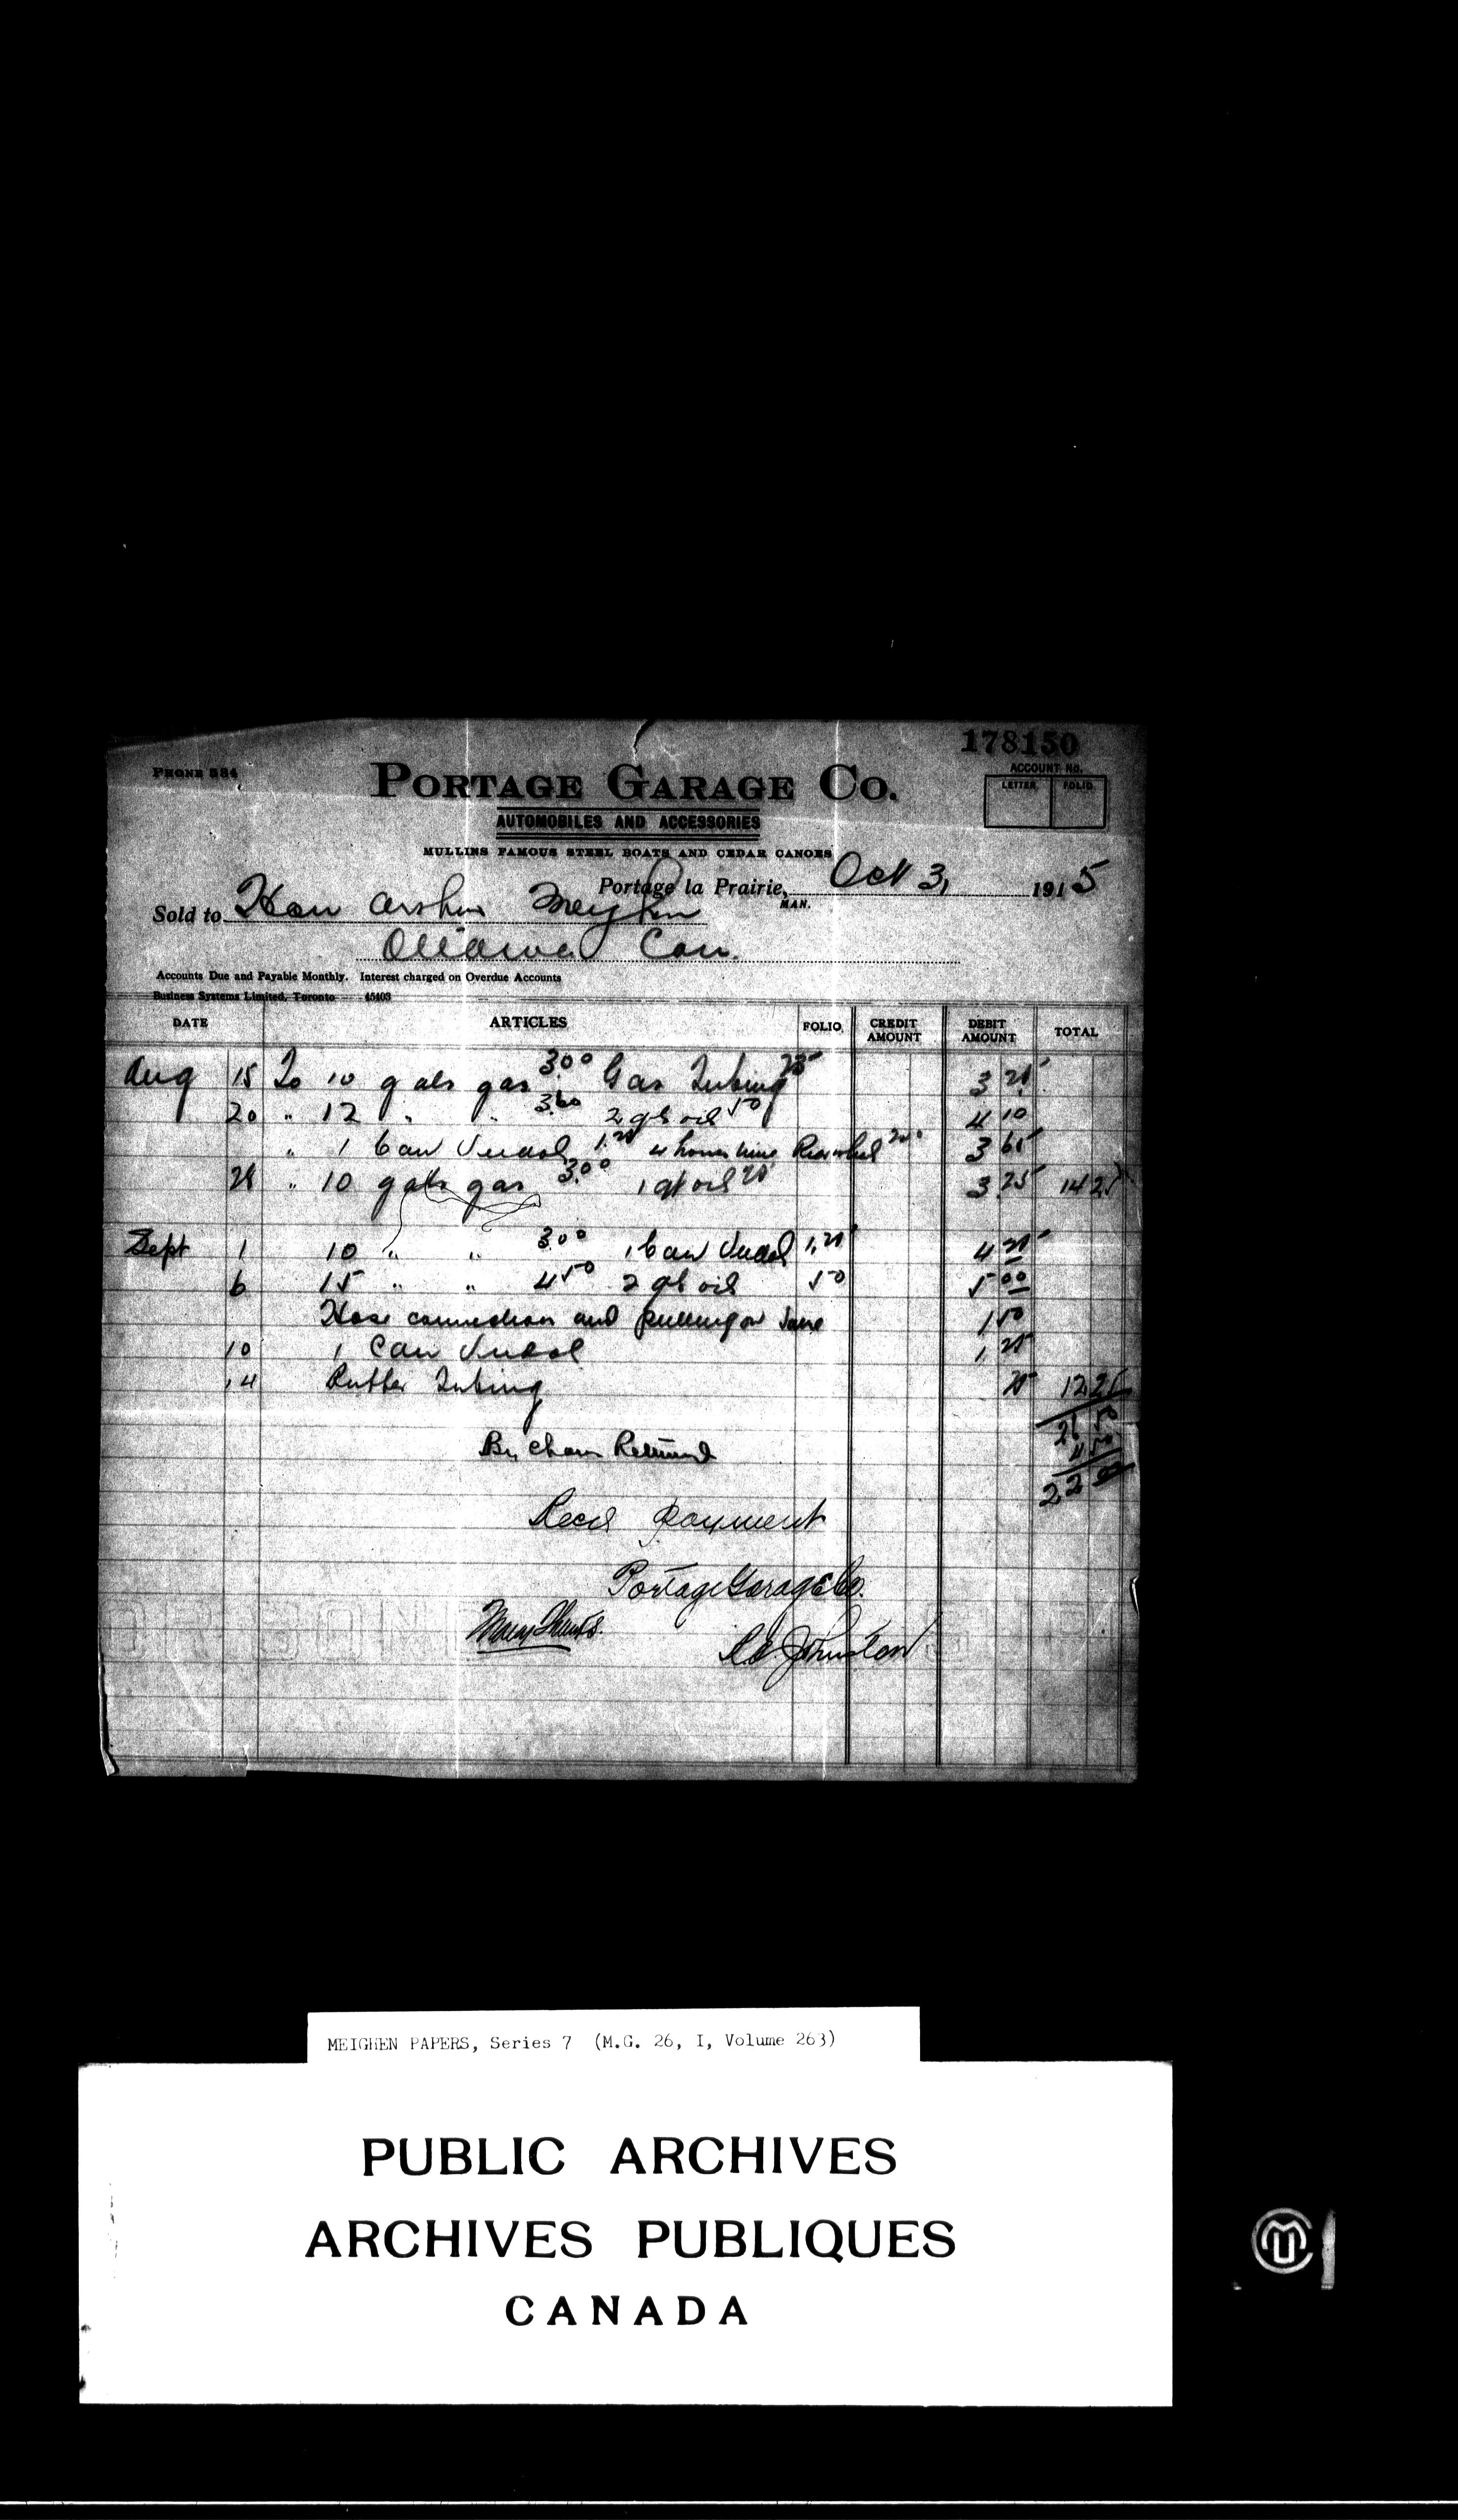 178150
PHONE 584
PORTAGE GARAGE CO.
ACCOUNT No.
LETTER FOLIO
AUTOMOBILES AND ACCESSORIES
MULLINS FAMOUS STEEL BOATS AND CEDAR CANOES
Portage la Prairie, MAN. Oct 3, 1915
Sold to Hon Arthur Meighen
Ottawa Can.
Accounts Due and Payable Monthly. Interest charged on Overdue Accounts
Business Systems Limited, Toronto 45403
DATE ARTICLES FOLIO CREDIT AMOUNT DEBIT AMOUNT TOTAL
Aug 15 To 10 gals gas 3.00 Gas Tubing 25 3 25
20 " 12 " " 3.60 2 qts oil 50 4 10
" 1 Can 4 hours 3 65
28 " 10 gals gas 3.00 1 qt oil 25 3.25 14 25
Sept 1 10 " " 3.00 1 Can 1.25 4 25
6 15 " " 4 50 2 qts oil 50 5 00
Hose connection and putting on same 1 50
10 1 Can 1 25
14 Rubber Tubing 25 12 25
26 50
By Returned 4 50
22
Recd payment
Portage Garage Co.
Many Thanks.
Johnston
MEIGHEN PAPERS, Series 7 (M.G. 26, I, Volume 263)
PUBLIC ARCHIVES
ARCHIVES PUBLIQUES
CANADA